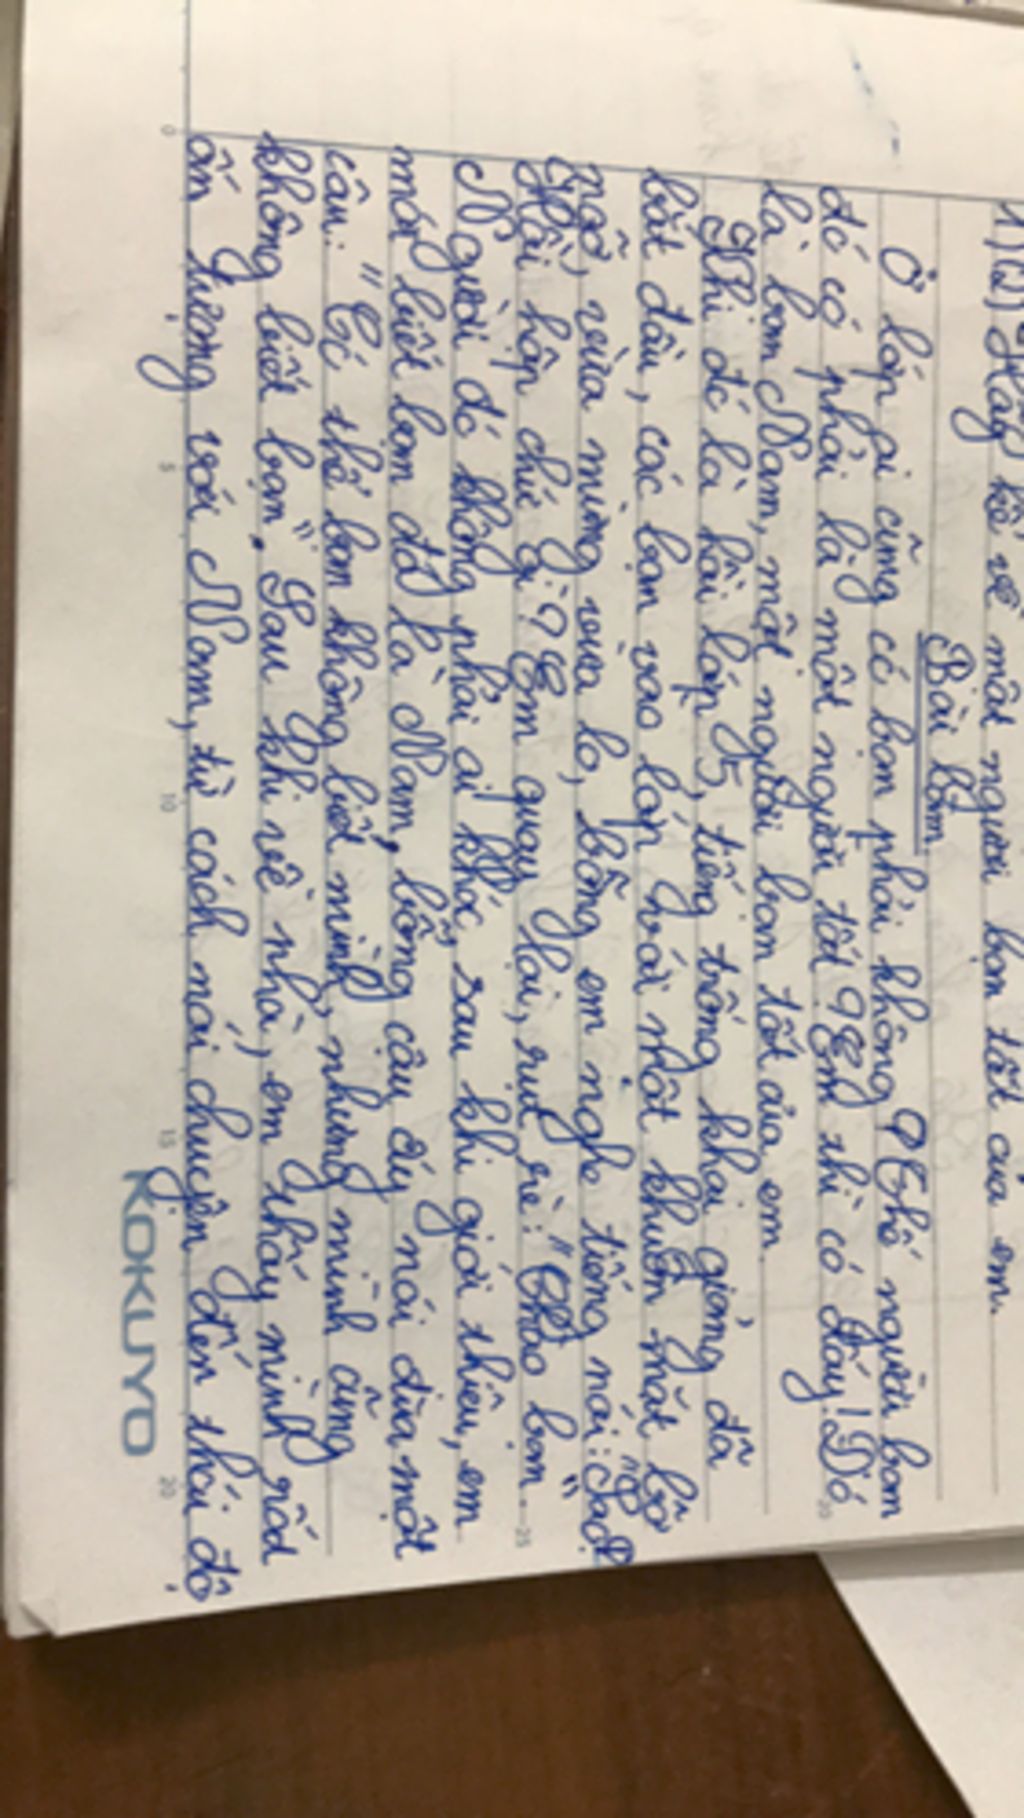 1) (2) Hãy kể về một người bạn tốt của em.
Bài làm
Ở lớp ai cũng có bạn phải không? Thế người bạn
đó có phải là một người tốt? Em thì có đấy! Đó
là bạn Nam, một người bạn tốt của em.
Khi đó là hồi lớp 5, tiếng trống khai giảng đã
bắt đầu, các bạn vào lớp với một khuôn mặt bỡ
ngỡ, vừa mừng vừa lo, bỗng em nghe tiếng nói: "
hồi hộp chứ gì? Em quay lại, rụt rè: "Chào bạn"
Người đó không phải ai khác, sau khi giới thiệu, em
mới biết bạn đó là Nam, bỗng cậu ấy nói đùa một
câu: "Có thể bạn không biết mình, nhưng mình cũng
không biết bạn". Sau khi về nhà, em thấy mình rất
ấn tượng với Nam, từ cách nói chuyện đến thái độ
KOKUYO
0 5 10 15 20
25